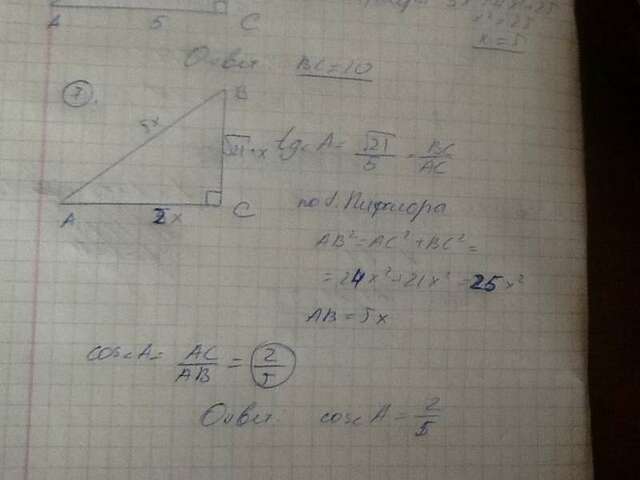 A 5 C
x = 5
Ответ: BC = 10
7.
B
5x
√21·x
tg<A = √21/5 = BC/AC
A 2x C
по т. Пифагора
AB² = AC² + BC² =
= 24x² + 21x² = 25x²
AB = 5x
cos<A = AC/AB = 2/5
Ответ: cos<A = 2/5